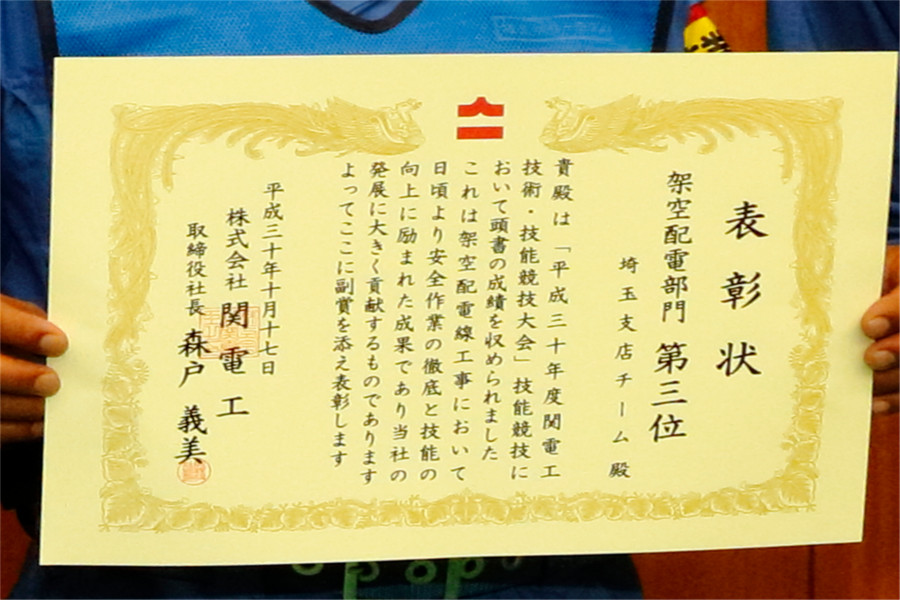 表彰状
架空配電部門 第三位
埼玉支店チーム 殿
貴殿は「平成三十年度関電工
技術・技能競技大会」技能競技に
おいて頭書の成績を収められました
これは架空配電線工事において
日頃より安全作業の徹底と技能の
向上に励まれた成果であり当社の
発展に大きく貢献するものであります
よってここに副賞を添え表彰します
平成三十年十月十七日
株式会社 関電工
取締役社長 森戸 義美